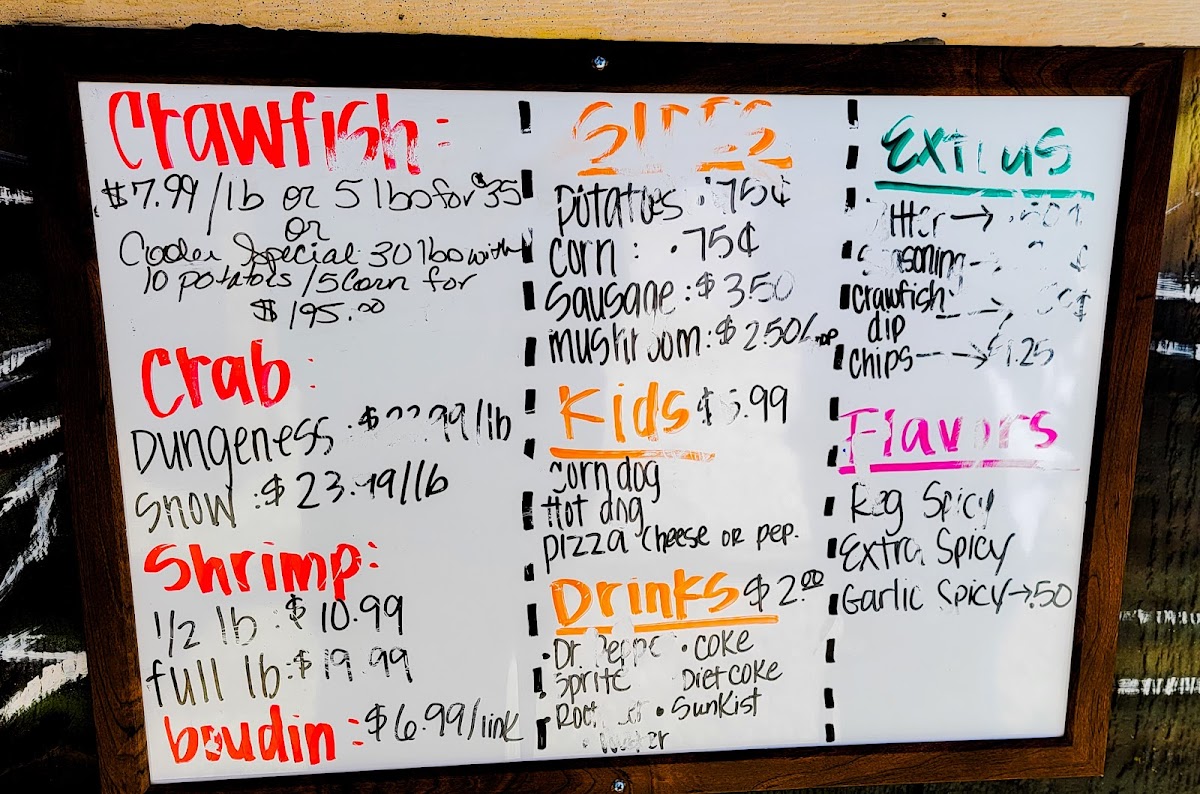 Crawfish:
$7.99/lb or 5 lbs for $35
or
Cooler Special 30 lbs with
10 potatoes /5 Corn for
$195.00
Crab:
Dungeness : 99/lb
Snow : $23.99/lb
Shrimp:
1/2 lb : $10.99
full lb : $19.99
boudin: $6.99/link
potatoes : .75¢
corn : .75¢
Sausage : $3.50
mushroom : $2.50/
Kids $5.99
corn dog
Hot dog
pizza cheese or pep.
Drinks $2.00
• Dr. Peppe • coke
Sprite Diet coke
• Sunkist
Extras
Seasoning
crawfish
dip
chips --→ $1.25
Flavors
Reg Spicy
Extra Spicy
Garlic Spicy → .50